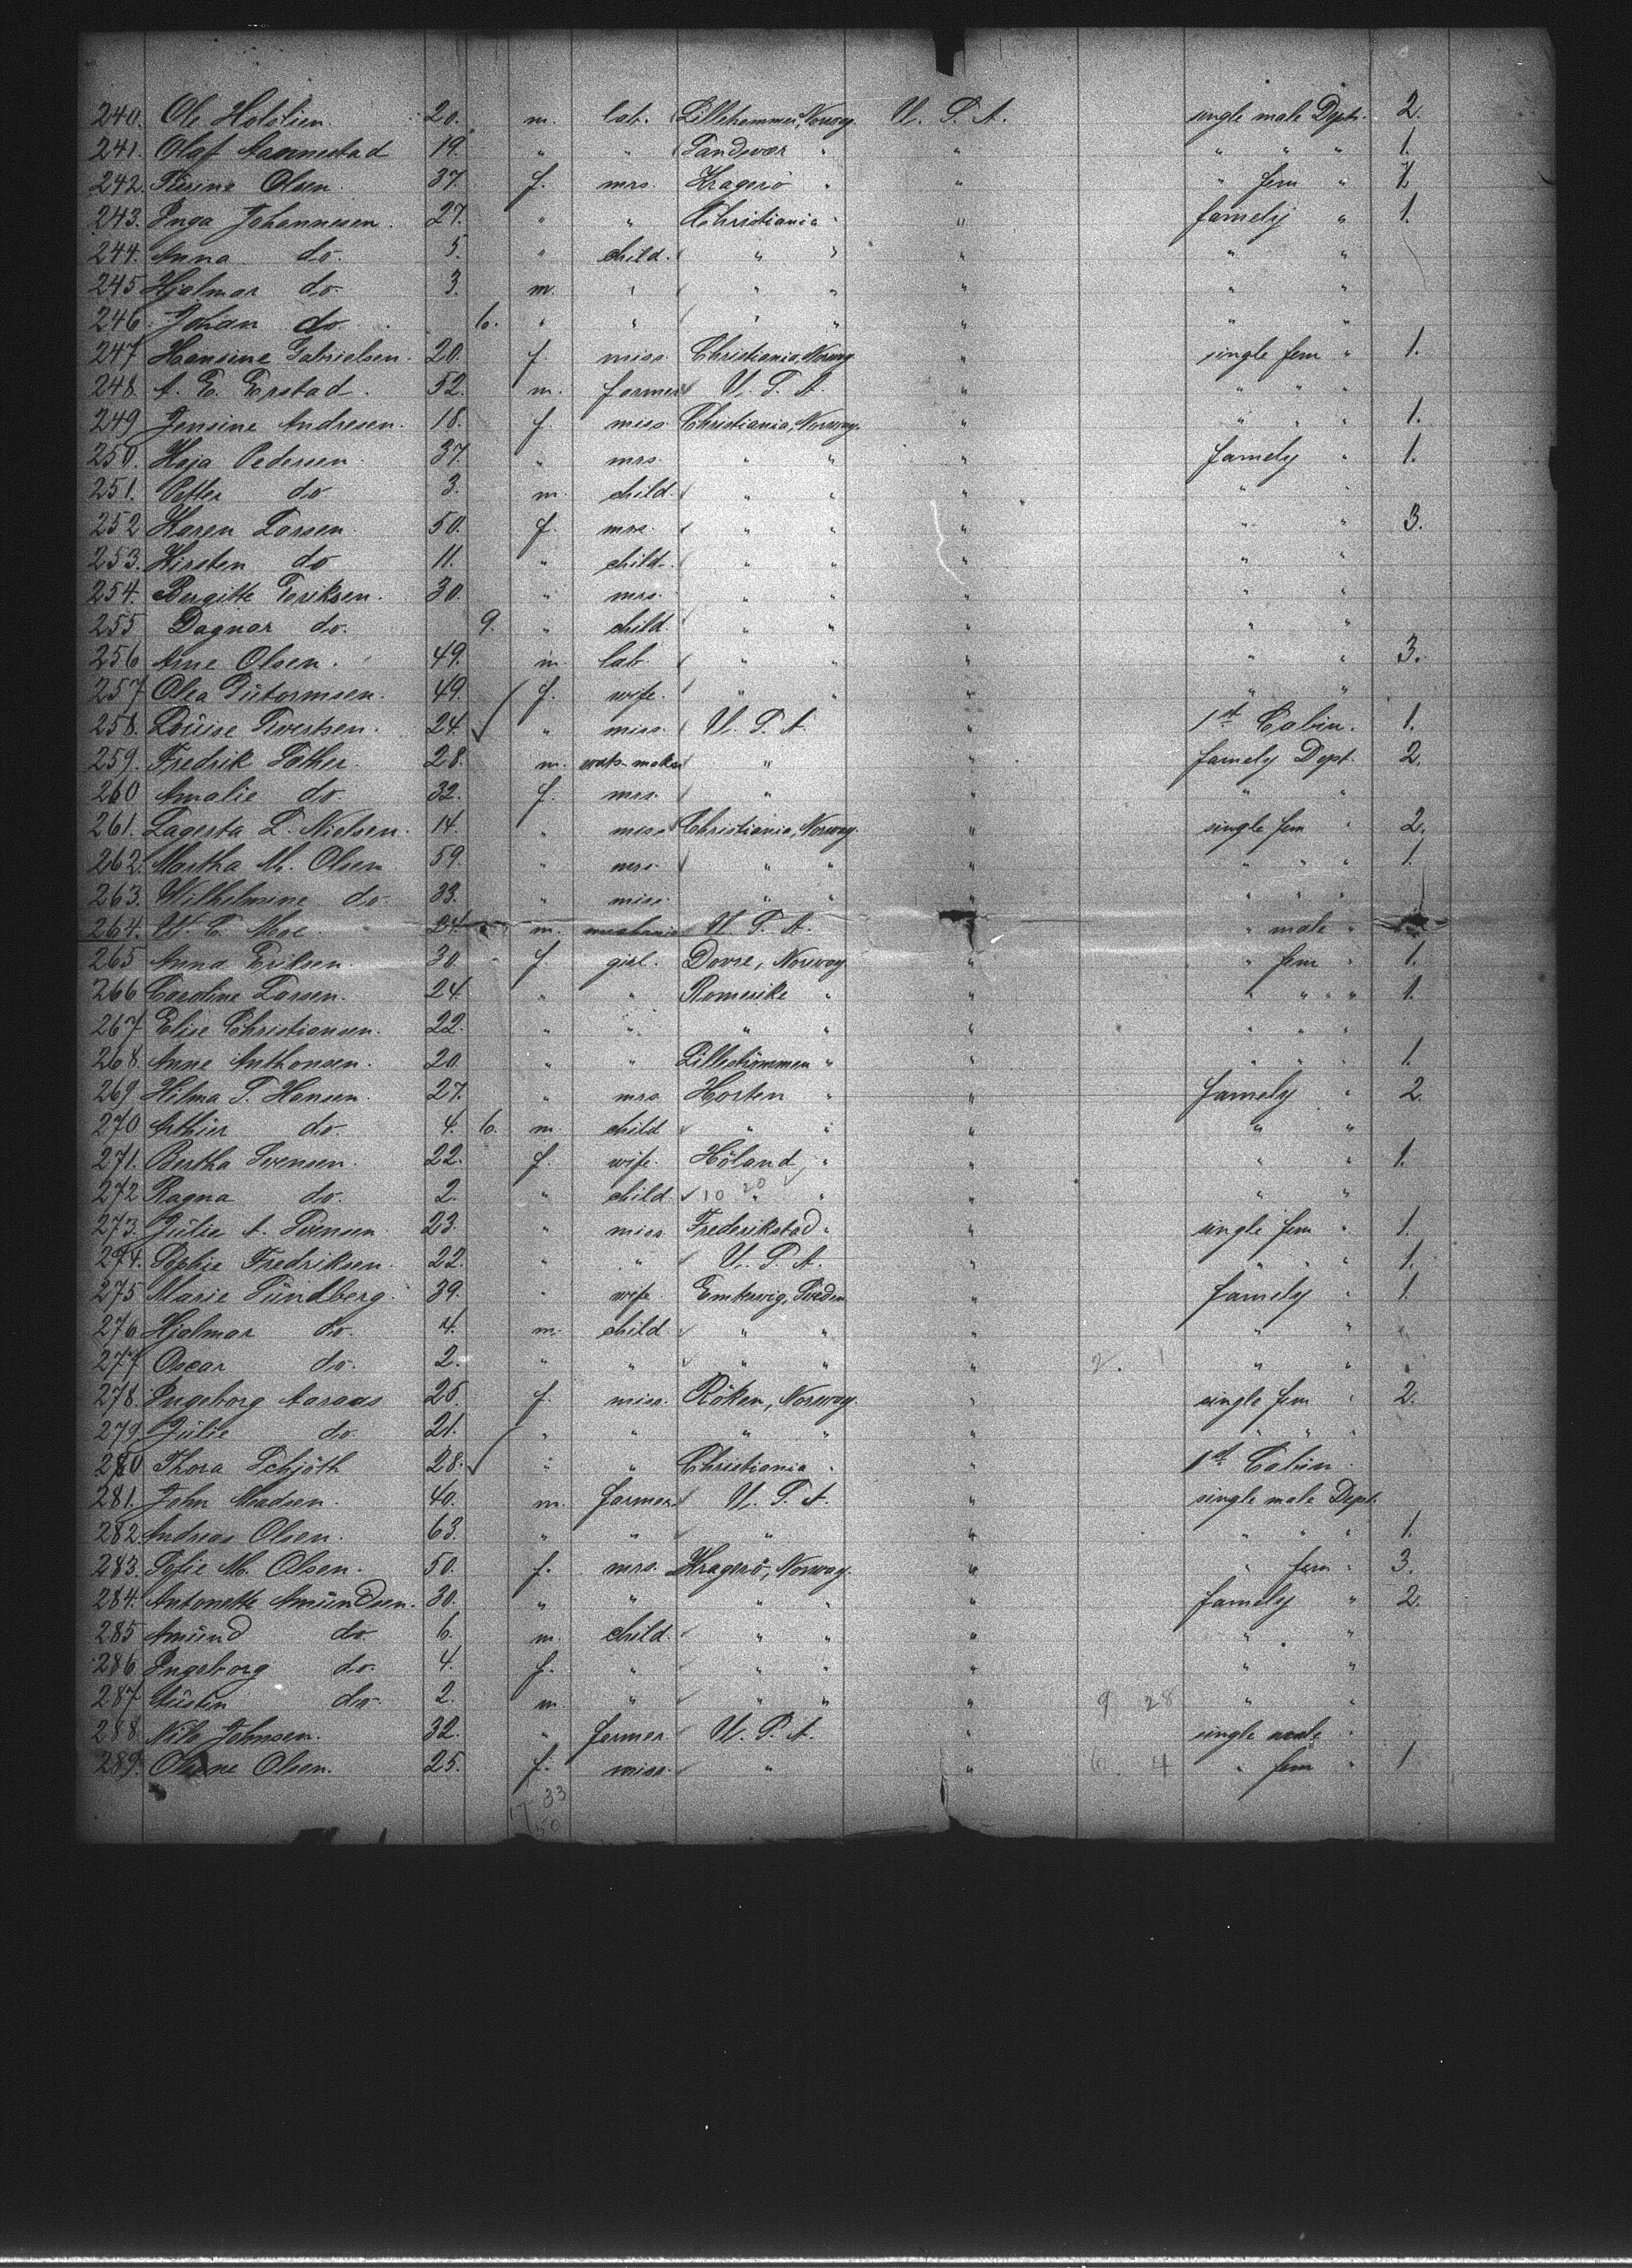 240. Ole Holstien. 20. m. lab. Lillehammer, Norway. U. S. A. single male Dept. 2.
241. Olaf Aannestad 19. " " Sandsvær " " " " " 1.
242. Terine Olsen. 37. f. mrs. Kragerö " " " fem " 1.
243. Inga Johannesen. 27. " " Christiania " " famely " 1.
244. Anna do. 5. " child. " " " " "
245 Hjalmar do. 3. m. " " " " " "
246. Johan do. 6. " " " " " " "
247 Hansine Gabrielsen. 20. f. miss. Christiania, Norway " single fem " 1.
248. A. E. Erstad. 52. m. farmer U. S. A. " " " "
249 Jensine Andresen. 18. f. miss. Christiania, Norway. " " " " 1.
250. Kaja Pedersen 37. " mrs. " " " famely " 1.
251. Petter do 3. m. child. " " " " "
252 Karen Larsen. 50. f. mrs. " " " " " 3.
253. Kirsten do 11. " child. " " " " "
254. Bergitte Eeriksen. 30. " mrs. " " " " "
255 Dagnar do. 9. " child. " " " " "
256 Arne Olsen. 49. m. lab. " " " " " 3.
257 Olea Gutormsen. 49. f. wife. " " " " "
258. Louise Iwertsen. 24. " miss. U. S. A. " 1st Cabin. 1.
259. Fredrik Sæther. 28. m. wats. maker " " famely Dept. 2.
260 Amalie do. 32. f. mrs. " " " "
261. Lagerta L. Nielsen. 14. " miss Christiania, Norway. " single fem " 2.
262. Martha M. Olsen 59. " mrs. " " " " " " 1.
263. Wilhelmine do 33. " miss. " " " " " "
264. W. E. Moe. 24. m. mechanic U. S. A. " male "
265 Anna Eriksen. 30. f. girl. Dovre, Norway. " " fem " 1.
266 Caroline Larsen. 24. " " Romerike " " " " " 1.
267 Elise Christiansen. 22. " " " " " " " "
268. Anne Anthonsen. 20. " " Lillehammer " " " " " 1.
269 Hilma S. Hansen. 27. " mrs. Horten " " famely " 2.
270 Arthur do. 4. 6. m. child " " " " "
271. Bertha Svensen. 22. f. wife. Höland " " " " 1.
272 Ragna do. 2. " child. 10 20 " " " " "
273. Julie A. Svensen. 23. " miss Frederikstad " " single fem " 1.
274. Sophie Fredriksen. 22. " " U. S. A. " " " " 1.
275 Marie Sundberg. 39. " wife. Emterwig, Sveden " famely " 1.
276 Hjalmar do. 4. m. child. " " " " "
277 Oscar do. 2. " " " " " 2. 1 " "
278. Ingeborg Aaraas 25. f. miss. Röken, Norway. " single fem " 2.
279. Julie do. 21. " " " " " " " "
280 Thora Schjöth 28. " " Christiania " " 1st Cabin.
281. John Madsen. 40. m. farmer U. S. A. " single male Dept.
282. Andreas Olsen. 63. " " " " " " " 1.
283. Sofie M. Olsen. 50. f. mrs. Kragerö, Norway. " " fem " 3.
284. Antonette Amundsen. 30. " " " " " famely " 2.
285 Amund do. 6. m. child. " " " " "
286. Ingeborg do. 4. f. " " " " " "
287 do. 2. m. " " " " 9 28 " "
288. Nils Johnsen. 32. " farmer U. S. A. " single male "
289. Olsen. 25. f. miss. " " 6. 4 " fem " 1
17 33
50